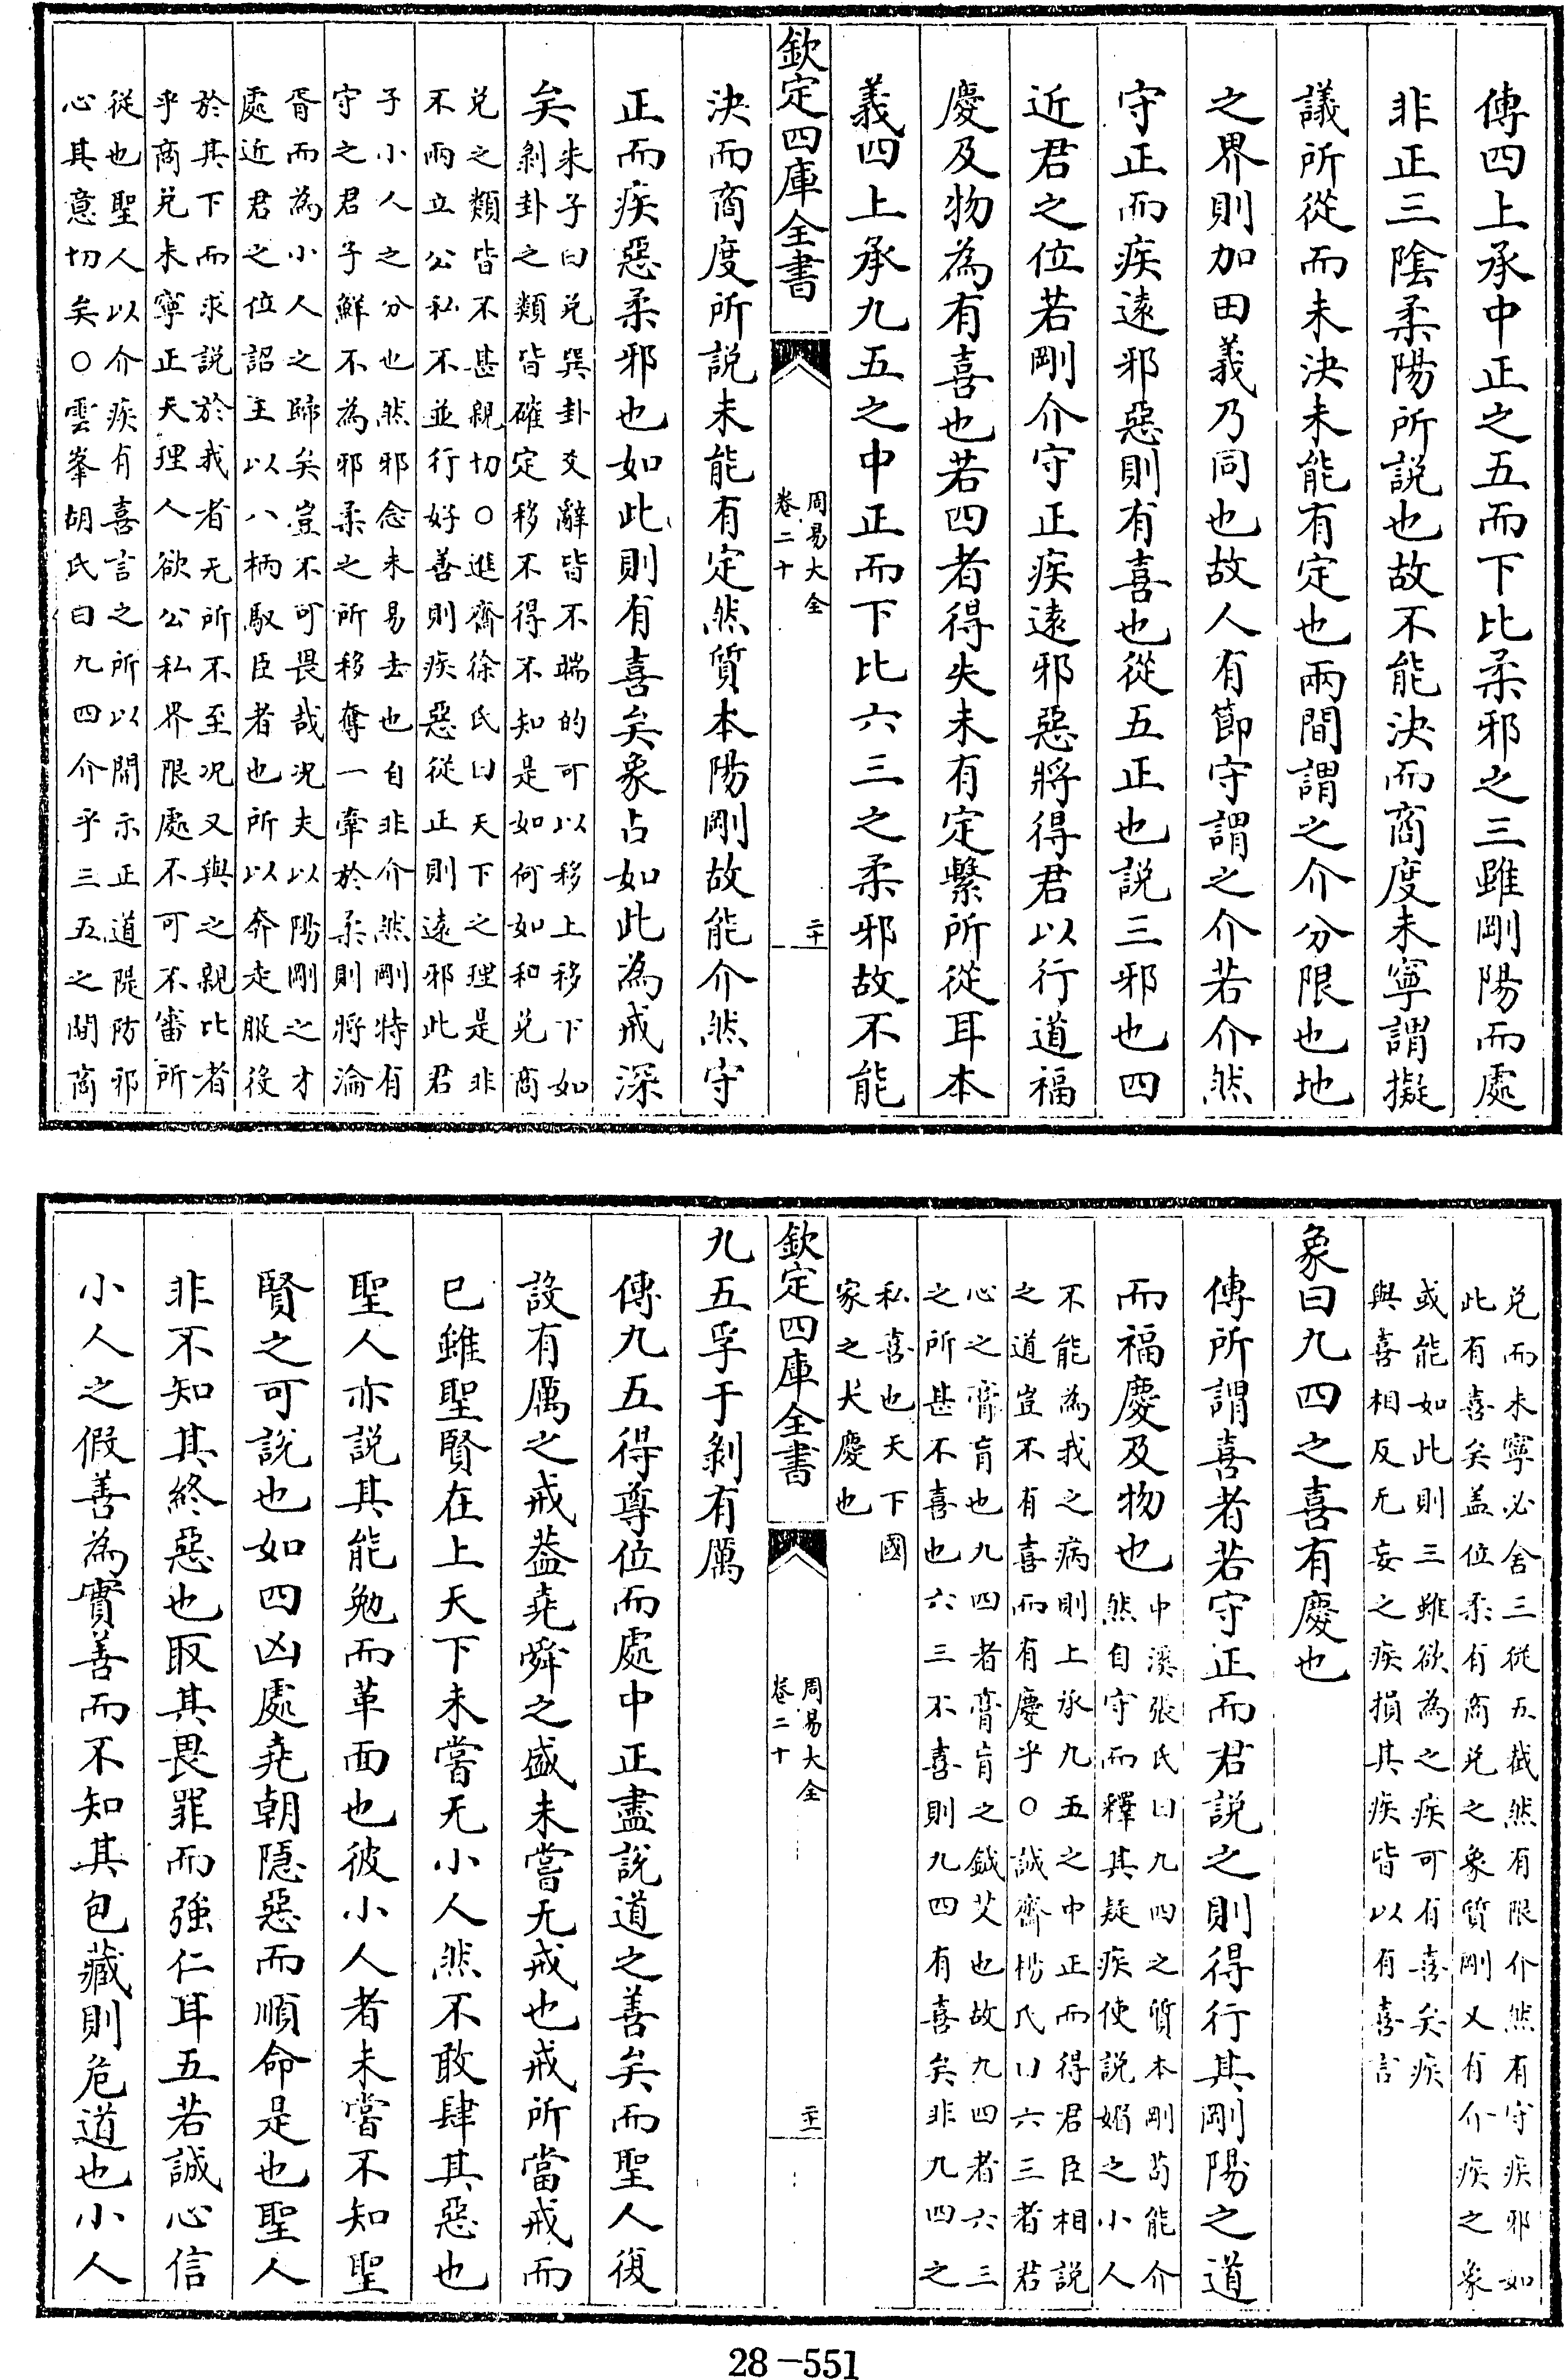 傳四上承中正之五而下比柔邪之三雖剛陽而處
非正三陰柔陽所説也故不能決而商度未寧謂擬
議所從而未決未能有定也兩間謂之介分限也地
之界則加田義乃同也故人有節守謂之介若介然
守正而疾遠邪惡則有喜也從五正也説三邪也四
近君之位若剛介守正疾遠邪惡將得君以行道福
慶及物為有喜也若四者得失未有定繫所從耳本
義四上承九五之中正而下比六三之柔邪故不能
欽定四庫全書
周易大全
卷二十
二十
決而商度所説未能有定然質本陽剛故能介然守
正而疾惡柔邪也如此則有喜矣象占如此為戒深
矣
朱子曰兌巽卦爻辭皆不端的可以移上移下如
剝卦之類皆確定移不得不知是如何如和兌商
兌之類皆不甚親切○進齋徐氏曰天下之理是非
不兩立公私不並行好善則疾惡從正則遠邪此君
子小人之分也然邪念未易去也自非介然剛特有
守之君子鮮不為邪柔之所移奪一牽於柔則將淪
胥而為小人之歸矣豈不可畏哉况夫以陽剛之才
處近君之位詔主以八柄馭臣者也所以奔走服役
於其下而求説於我者无所不至况又與之親比者
乎商兌未寧正天理人欲公私界限處不可不審所
從也聖人以介疾有喜言之所以開示正道隄防邪
心其意切矣○雲峯胡氏曰九四介乎三五之間商
兌而未寧必舍三從五截然有限介然有守疾邪如
此有喜矣盖位柔有商兌之象質剛又有介疾之象
或能如此則三雖欲為之疾可有喜矣疾
與喜相反无妄之疾損其疾皆以有喜言
象曰九四之喜有慶也
傳所謂喜者若守正而君説之則得行其剛陽之道
而福慶及物也
中溪張氏曰九四之質本剛苟能介
然自守而釋其疑疾使説媚之小人
不能為我之病則上承九五之中正而得君臣相説
之道豈不有喜而有慶乎○誠齋楊氏曰六三者君
心之膏肓也九四者膏肓之鍼艾也故九四者六三
之所甚不喜也六三不喜則九四有喜矣非九四之
私喜也天下國
家之大慶也
欽定四庫全書
周易大全
卷二十
二十一
九五孚于剝有厲
傳九五得尊位而處中正盡説道之善矣而聖人復
設有厲之戒葢堯舜之盛未嘗无戒也戒所當戒而
已雖聖賢在上天下未嘗无小人然不敢肆其惡也
聖人亦説其能勉而革面也彼小人者未嘗不知聖
賢之可説也如四凶處堯朝隱惡而順命是也聖人
非不知其終惡也取其畏罪而強仁耳五若誠心信
小人之假善為實善而不知其包藏則危道也小人
28-551